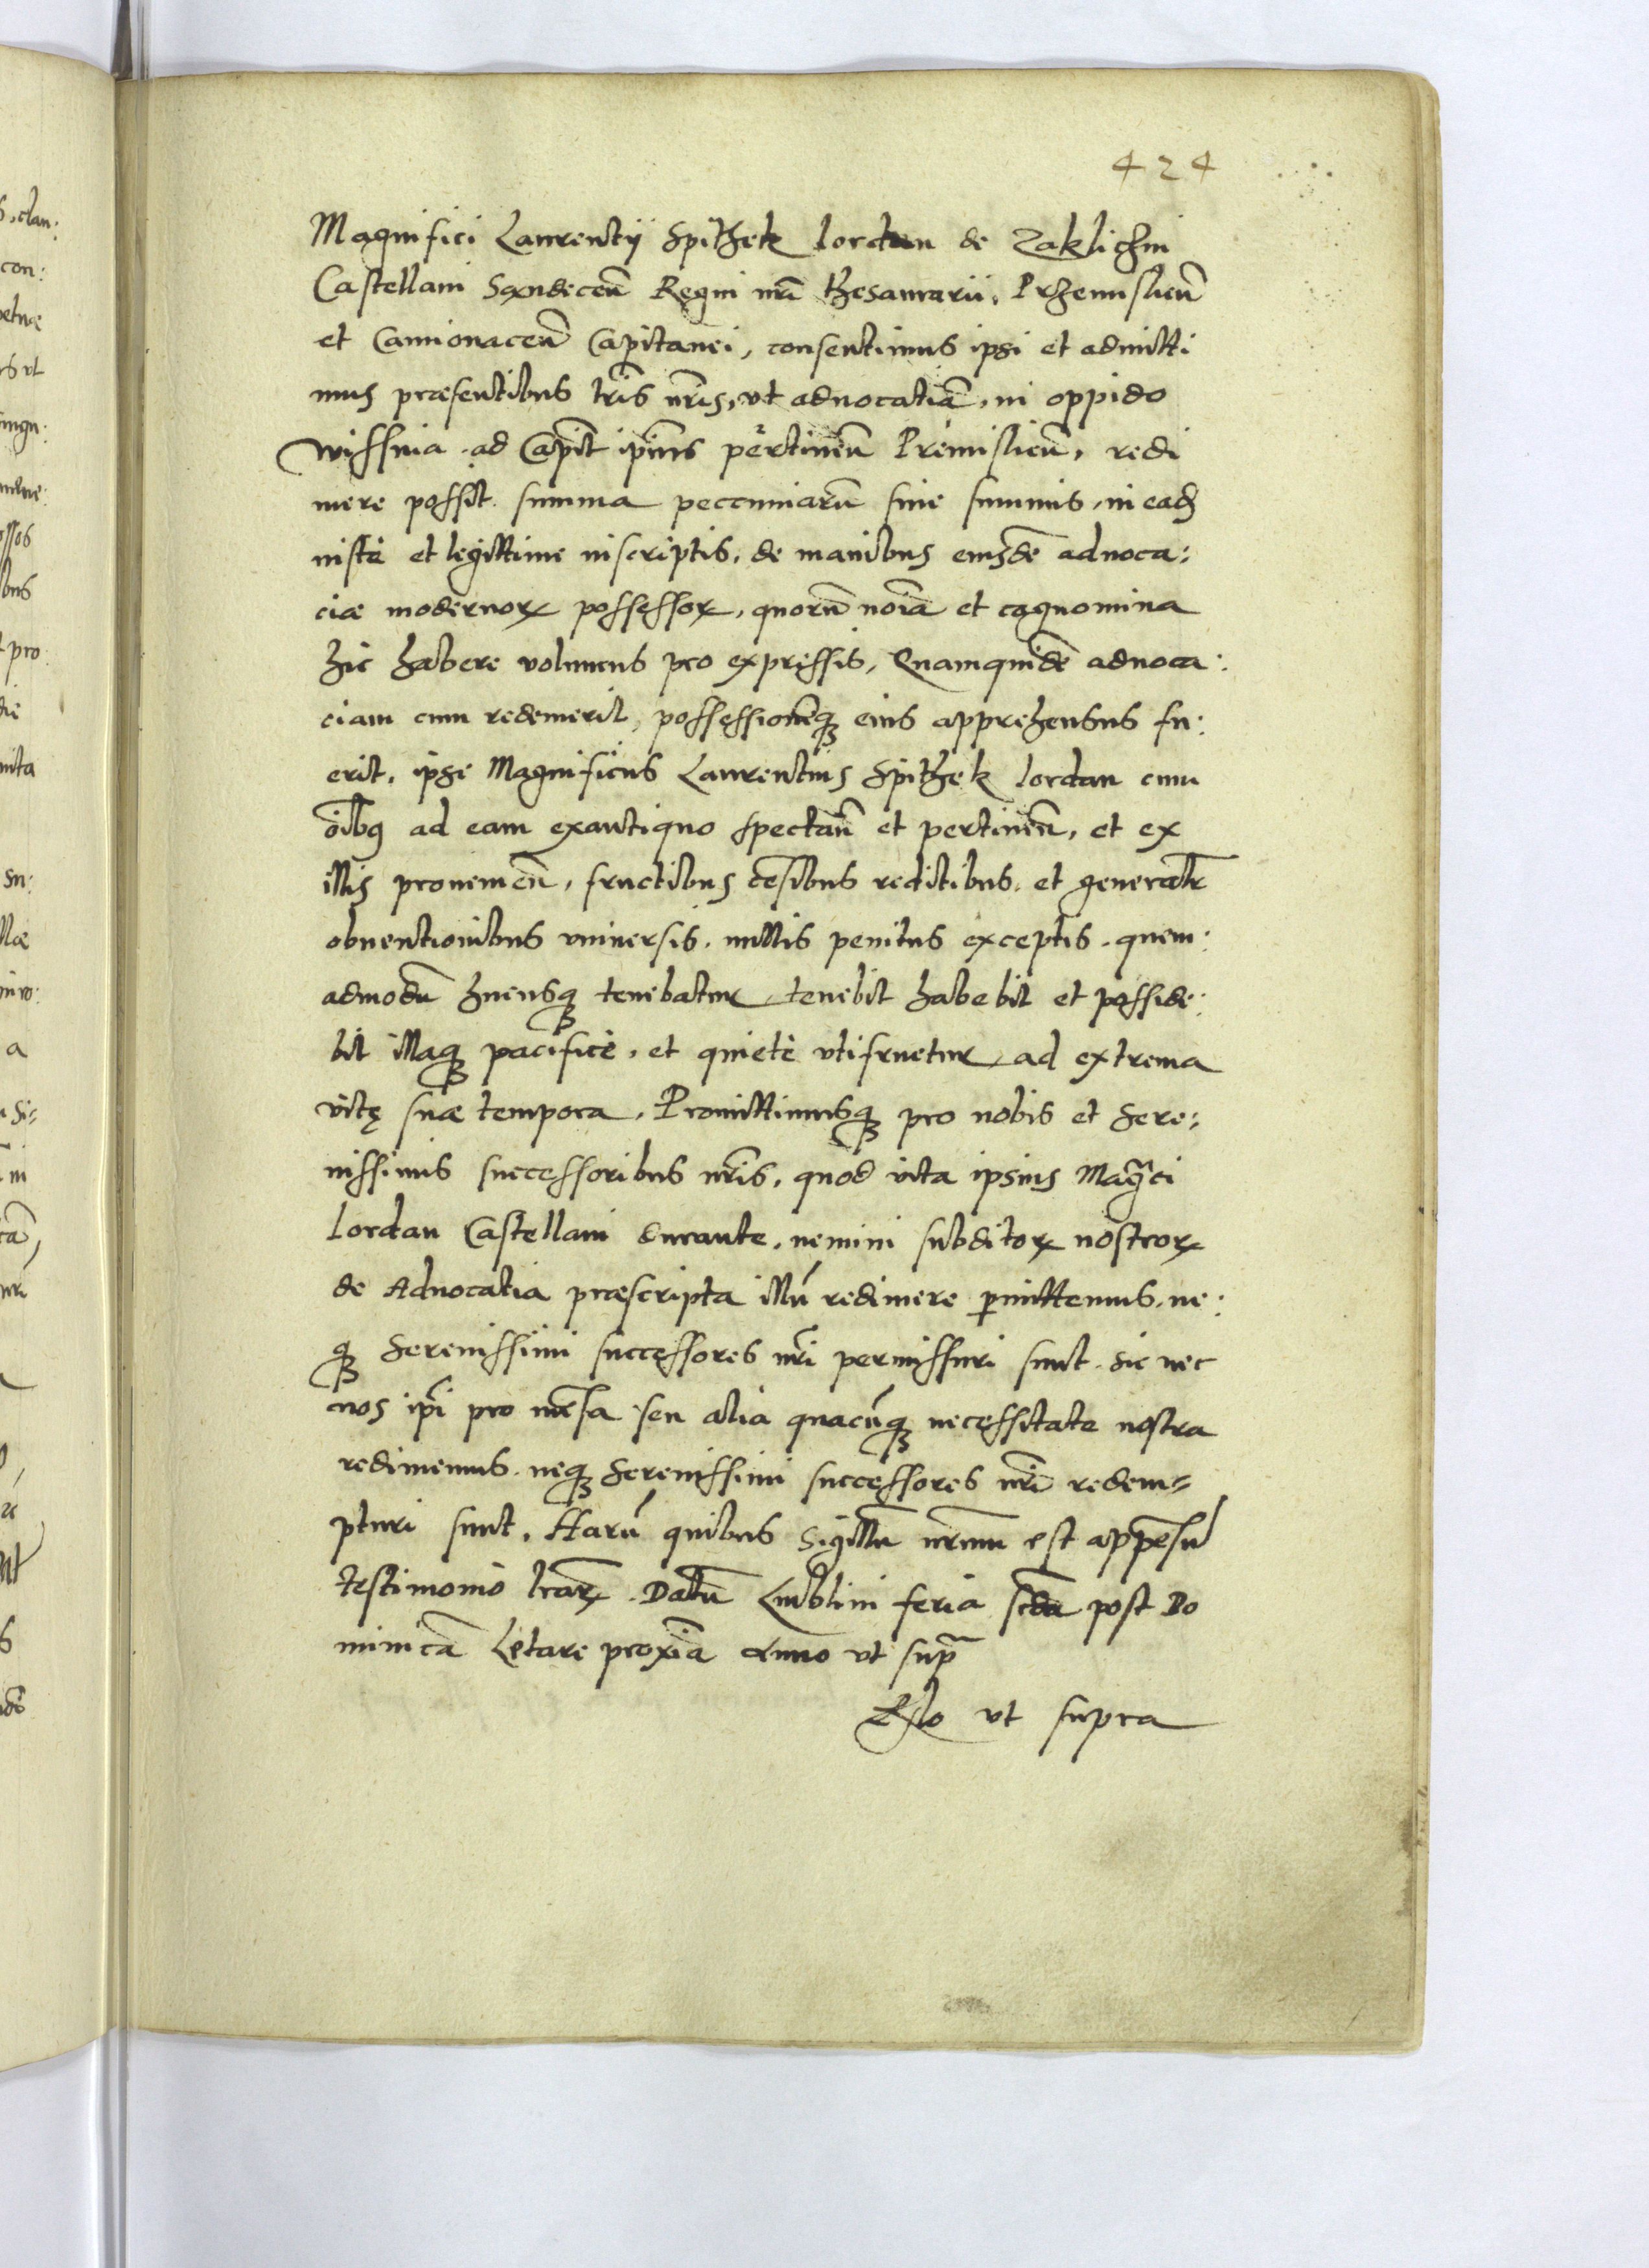 424
Magnifici Laurentÿ Spithek Iordan de Zaklichin
Castellani Sandeceñ Regni nrĩ thesaurarii, Przemislieñ
et Camionaceñ Capitanei, consentimus ipsi et admitti
mus præsentibus lrĩs nrĩs, vt aduocatiã, in oppido
Wissnia ad Capit̃ ipĩus pertineñ Premislieñ, redi
mere possit summa pecuniarũ siue summis, in eadẽ
iustè et legittime inscriptis, de manibus eiusdẽ aduoca:
ciæ modernoꝝ possessoꝝ, quorũ noĩa et cognomina
hic habere volumus pro expressis, Quamquidẽ aduoca:
ciam cum redemerit, possessionẽqꝫ eius apprehensus fu:
erit, ipse Magnificus Laurentius Spithek Iordan cum
oĩbus ad eam exantiquo spectañ et pertineñ, et ex
illis prouenieñ, fructibus cẽsibus reditibus, et generalr̃
obuentionibus vniuersis, nullis penitus exceptis, quem:
admodũ hucusqꝫ tenebatur, tenebit habebit et posside:
bit illaqꝫ pacificè, et quietè vtifruetur, ad extrema
vitę suæ tempora, Promittimusqꝫ pro nobis et Sere:
nissimis successoribus nrĩs, quod vita ipsius Magcĩ
Iordan Castellani durante, nemini subditoꝝ nostroꝝ
de Aduocatia præscripta illũ redimere ꝑmittemus, ne:
qꝫ Serenissimi successores nrĩ permissuri sunt, sic nec
nos ipĩ pro mẽsa seu alia quacũqꝫ necessitate nostra
redimemus, neqꝫ Serenissimi successores nrĩ redem-
pturi sunt, Harũ quibus Sigillũ nrũm est appẽsũ
testimonio lrãꝝ. Datũ Lublini feria scd̃a post Do
minicã Letare proxĩa Anno vt supr̃
Rlo vt supra